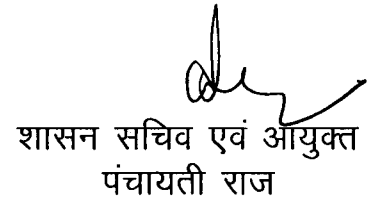 शासन सचिव एवं आयुक्त
पंचायती राज